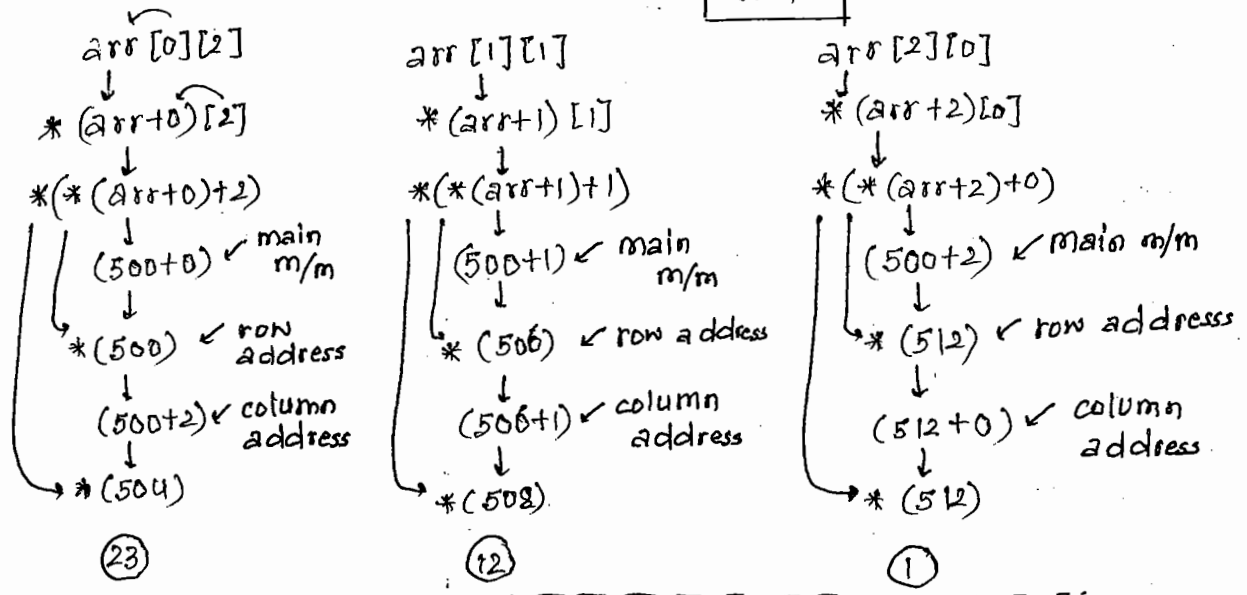 arr [0][2]
*(arr+0)[2]
*(*(arr+0)+2)
(500+0) ✓ main m/m
*(500) ✓ row address
(500+2) ✓ column address
*(504)
23
arr [1][1]
*(arr+1)[1]
*(*(arr+1)+1)
(500+1) ✓ main m/m
*(506) ✓ row address
(506+1) ✓ column address
*(508)
12
arr [2][0]
*(arr+2)[0]
*(*(arr+2)+0)
(500+2) ✓ main m/m
*(512) ✓ row addresss
(512+0) ✓ column address
*(512)
1